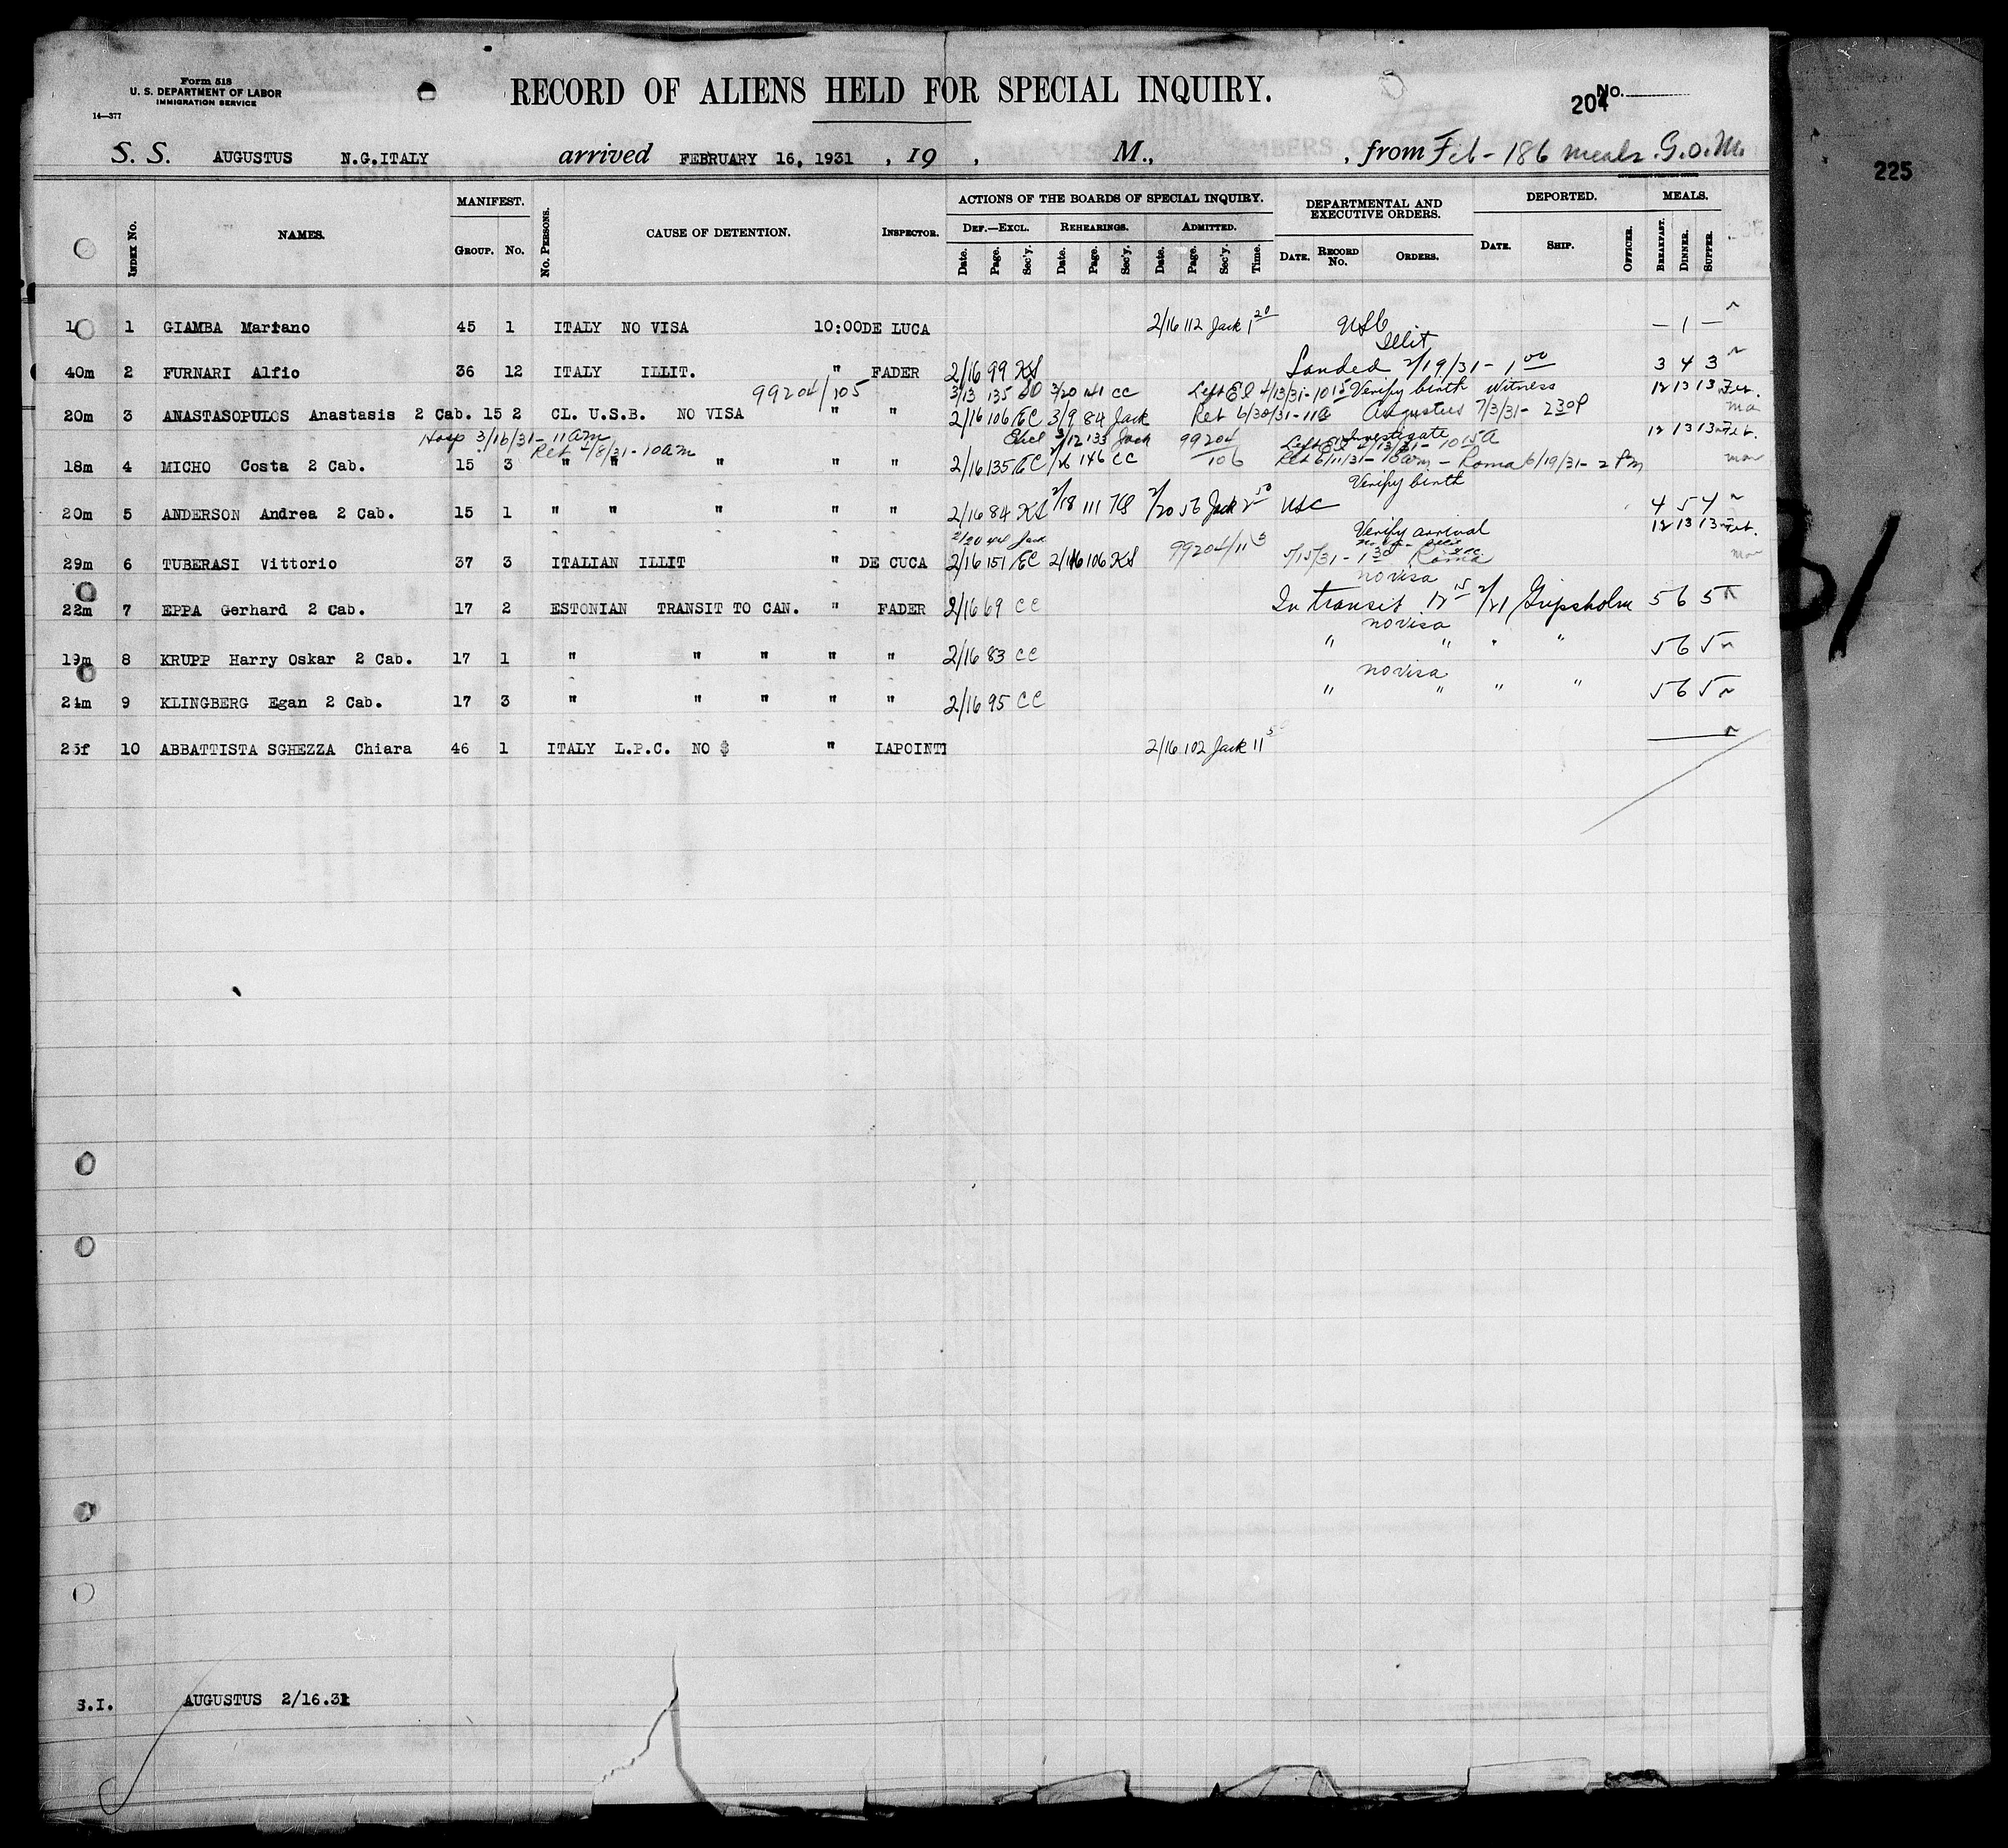 Form 518
U. S. DEPARTMENT OF LABOR
IMMIGRATION SERVICE
14—377
RECORD OF ALIENS HELD FOR SPECIAL INQUIRY.
No.
204
225
S. S. AUGUSTUS N.G.ITALY arrived FEBRUARY 16, 1931 , 19 , M., , from Feb - 186 meals. G.O.M.
INDEX No. NAMES. MANIFEST. GROUP. No. No. PERSONS. CAUSE OF DETENTION. INSPECTOR. ACTIONS OF THE BOARDS OF SPECIAL INQUIRY. DEF.—EXCL. REHEARINGS. ADMITTED. Date. Page. Sec'y. Date. Page. Sec'y. Date. Page. Sec'y. Time. DEPARTMENTAL AND EXECUTIVE ORDERS. DATE. RECORD No. ORDERS. DEPORTED. DATE. SHIP. OFFICER. MEALS. BREAKFAST. DINNER. SUPPER.
1 GIAMBA Mariano 45 1 ITALY NO VISA 10:00 DE LUCA 2/16 112 Jack 1 20 USC — 1 —
Illit
40m 2 FURNARI Alfio 36 12 ITALY ILLIT. " FADER 2/16 99 KS Landed 2/19/31 - 1 00 3 4 3
99204/105 3/13 135 3/20 141 CC Left El 4/13/31 - 10 15 Verify birth Witness 12 13 13 Feb.
20m 3 ANASTASOPULOS Anastasis 2 Cab. 15 2 CL. U.S.B. NO VISA " " 2/16 106 EC 3/9 84 Jack Ret 6/30/31 - 11a Augustus 7/3/31 - 2 30P Mar
Hosp 3/16/31 - 11 am Ret 4/8/31 - 10 am Excl 3/12 133 Jack 99204/106 Investigate Left El 4/13/31 - 10 15A 12 13 13 Feb.
18m 4 MICHO Costa 2 Cab. 15 3 " " " " " 2/16 135 EC 2/26 146 CC Ret 6/11/31 - 10am - Roma 6/19/31 - 2 Pm Mar
Verify birth
20m 5 ANDERSON Andrea 2 Cab. 15 1 " " " " " 2/16 84 KS 2/18 111 KS 2/20 56 Jack 2 50 USC 4 5 4
2/20 44 Jack 99204/113 Verify arrival 12 13 13 Feb.
29m 6 TUBERASI Vittorio 37 3 ITALIAN ILLIT " DE CUCA 2/16 151 EC 106 KS 5/15/31 - 1 30 Roma Mar
no visa
22m 7 EPPA Gerhard 2 Cab. 17 2 ESTONIAN TRANSIT TO CAN. " FADER 2/16 69 CC In transit 12 15 2/21 Gripsholm 5 6 5
no visa
19m 8 KRUPP Harry Oskar 2 Cab. 17 1 " " " " " 2/16 83 CC " " " " 5 6 5
no visa
24m 9 KLINGBERG Egan 2 Cab. 17 3 " " " " " 2/16 95 CC " " " " 5 6 5
25f 10 ABBATTISTA SGHEZZA Chiara 46 1 ITALY L.P.C. NO $ " LAPOINT 2/16 102 Jack 11 50
S.I. AUGUSTUS 2/16.31